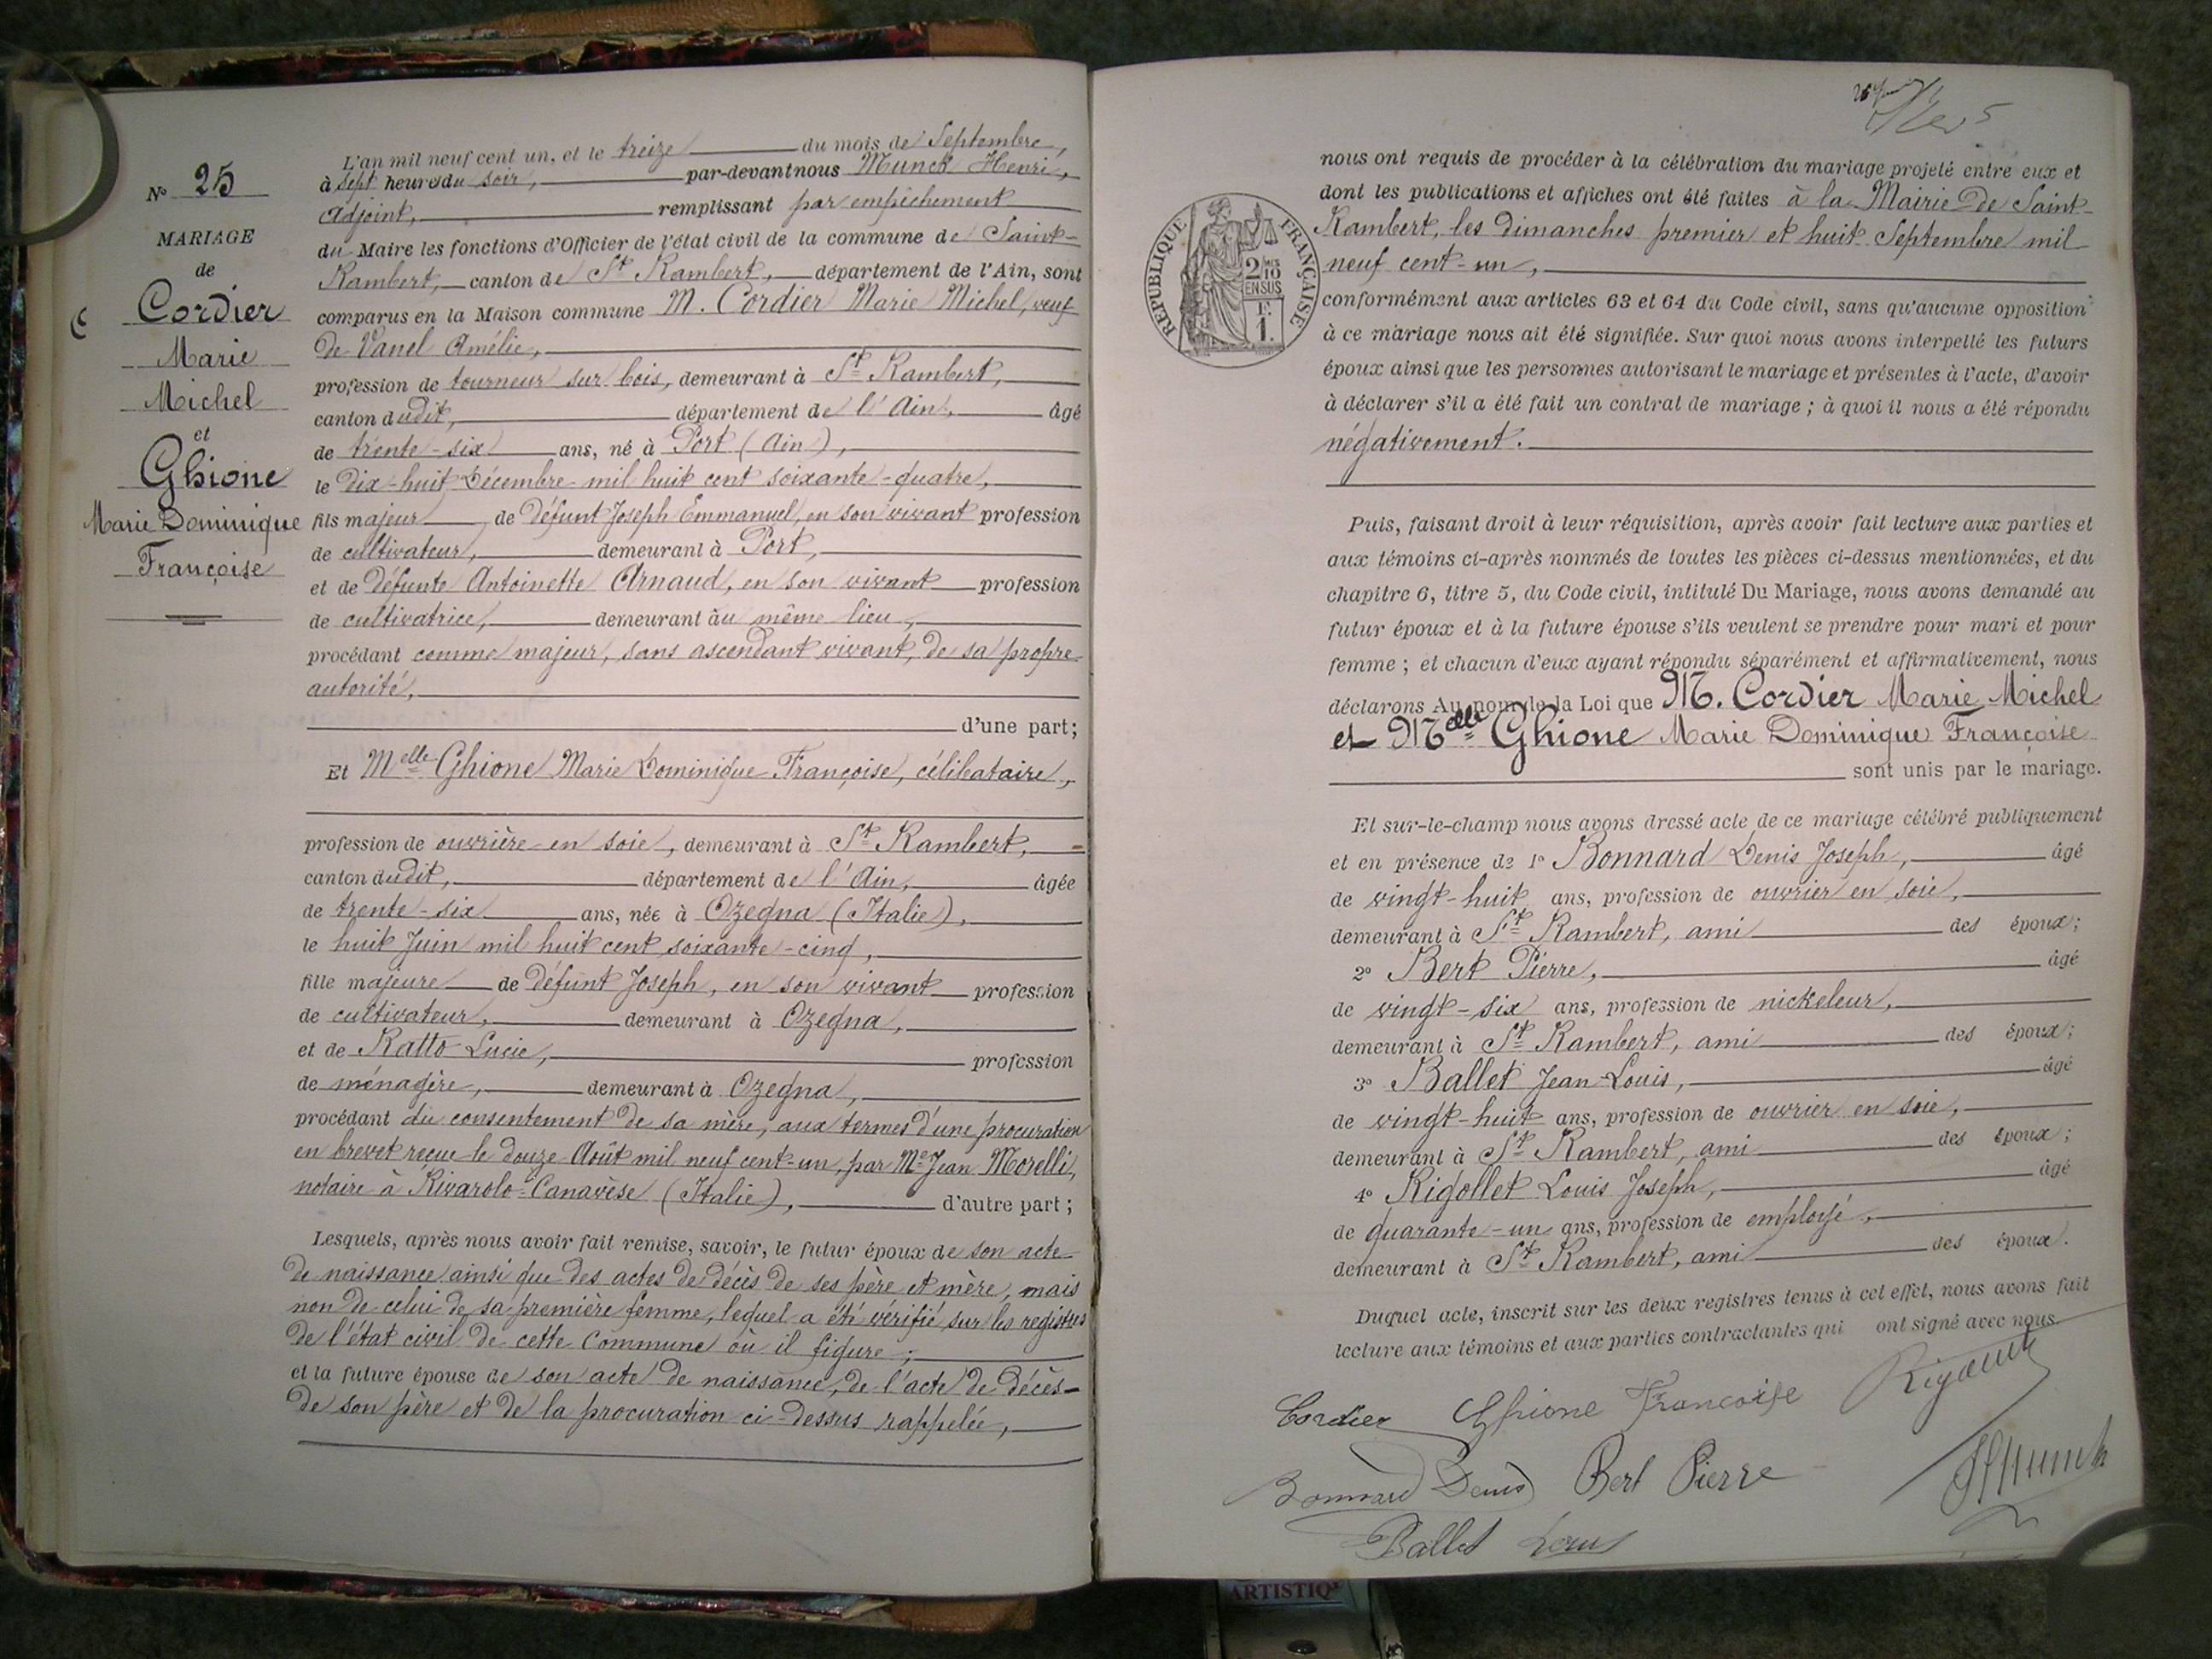 Nº 25
MARIAGE
de
Cordier
Marie
Michel
et
Ghione
Marie Dominique
Françoise
L'an mil neuf cent un, et le treize du mois de Septembre,
à sept heures du soir, par-devant nous Munck Henri,
Adjoint, remplissant par empêchement
du Maire les fonctions d'Officier de l'état civil de la commune de Saint-
Rambert, canton de St Rambert, département de l'Ain, sont
comparus en la Maison commune M. Cordier Marie Michel, veuf
de Vanel Amélie,
profession de tourneur sur bois, demeurant à St Rambert,
canton dudit, département de l'Ain, âgé
de trente-six ans, né à Port (Ain),
le dix-huit Décembre mil huit cent soixante-quatre,
fils majeur de défunt Joseph Emmanuel, en son vivant profession
de cultivateur, demeurant à Port,
et de défunte Antoinette Arnaud, en son vivant profession
de cultivatrice, demeurant au même lieu,
procédant comme majeur, sans ascendant vivant, de sa propre
autorité,
d'une part;
Et Melle Ghione Marie Dominique Françoise, célibataire,
profession de ouvrière en soie, demeurant à St Rambert,
canton dudit, département de l'Ain, âgée
de trente-six ans, née à Ozegna (Italie),
le huit Juin mil huit cent soixante-cinq,
fille majeure de défunt Joseph, en son vivant profession
de cultivateur, demeurant à Ozegna,
et de Ratto Lucie, profession
de ménagère, demeurant à Ozegna,
procédant du consentement de sa mère, aux termes d'une procuration
en brevet reçue le douze Août mil neuf cent-un, par Me Jean Morelli,
notaire à Rivarolo-Canavèse (Italie), d'autre part;
Lesquels, après nous avoir fait remise, savoir, le futur époux de son acte
de naissance ainsi que des actes de décès de ses père et mère, mais
non de celui de sa première femme, lequel a été vérifié sur les registres
de l'état civil de cette Commune où il figure;
et la future épouse de son acte de naissance, de l'acte de décès
de son père et de la procuration ci-dessus rappelée,
nous ont requis de procéder à la célébration du mariage projeté entre eux et
dont les publications et affiches ont été faites à la Mairie de Saint-
Rambert, les dimanches premier et huit Septembre mil
neuf cent-un,
RÉPUBLIQUE FRANÇAISE
2/10
EN SUS
1.
conformément aux articles 63 et 64 du Code civil, sans qu'aucune opposition
à ce mariage nous ait été signifiée. Sur quoi nous avons interpellé les futurs
époux ainsi que les personnes autorisant le mariage et présentes à l'acte, d'avoir
à déclarer s'il a été fait un contrat de mariage; à quoi il nous a été répondu
négativement.
Puis, faisant droit à leur réquisition, après avoir fait lecture aux parties et
aux témoins ci-après nommés de toutes les pièces ci-dessus mentionnées, et du
chapitre 6, titre 5, du Code civil, intitulé Du Mariage, nous avons demandé au
futur époux et à la future épouse s'ils veulent se prendre pour mari et pour
femme; et chacun d'eux ayant répondu séparément et affirmativement, nous
déclarons Au nom de la Loi que M. Cordier Marie Michel
et Melle Ghione Marie Dominique Françoise
sont unis par le mariage.
Et sur-le-champ nous avons dressé acte de ce mariage célébré publiquement
et en présence de 1º Bonnard Denis Joseph, âgé
de vingt-huit ans, profession de ouvrier en soie,
demeurant à St Rambert, ami des époux;
2º Bert Pierre, âgé
de vingt-six ans, profession de nickeleur,
demeurant à St Rambert, ami des époux;
3º Ballet Jean-Louis, âgé
de vingt-huit ans, profession de ouvrier en soie,
demeurant à St Rambert, ami des époux;
4º Rigollet Louis Joseph, âgé
de quarante-un ans, profession de employé,
demeurant à St Rambert, ami des époux.
Duquel acte, inscrit sur les deux registres tenus à cet effet, nous avons fait
lecture aux témoins et aux parties contractantes qui ont signé avec nous.
Cordier Ghione Françoise
Bonnard Denis Bert Pierre
Ballet Louis
ARTISTIQ